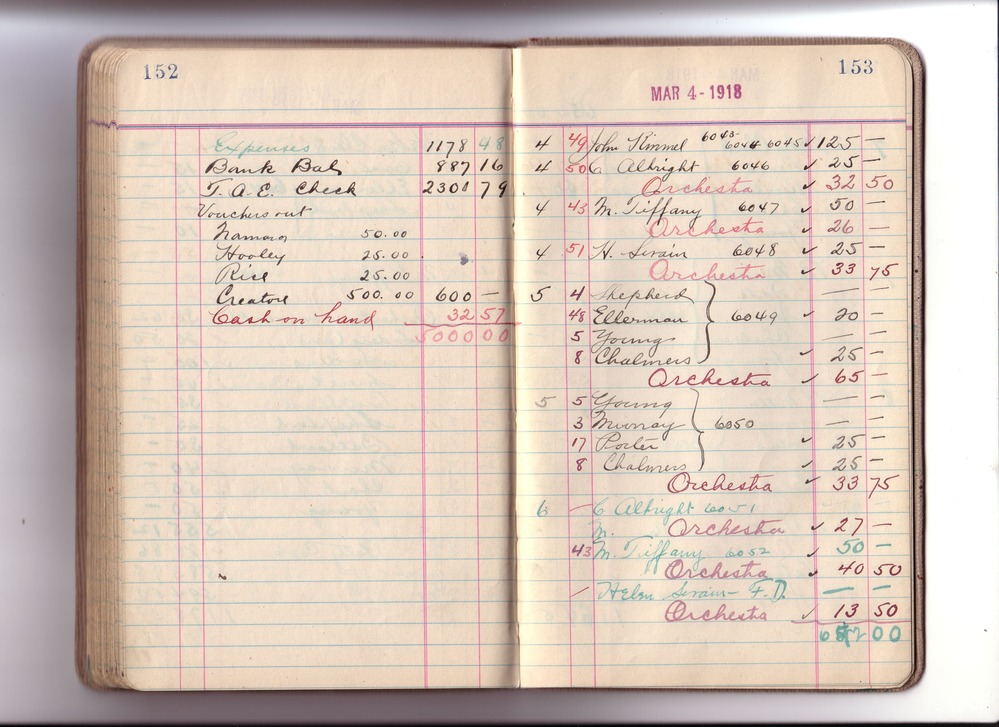 152
Expenses 1178 48
Bank Bal 887 16
T. A. E. Check 2301 79
Vouchers out
Namara 50.00
Hooley 25.00
Rice 25.00
Creatore 500.00 600 —
Cash on hand 32 57
5000 00
153
MAR 4 - 1918
4 49 John Kimmel 6043- 6044 6045 ✓ 125 —
4 50 C Albright 6046 ✓ 25 —
Orchestra ✓ 32 50
4 43 M. Tiffany 6047 ✓ 50 —
Orchestra ✓ 26 —
4 51 H. 6048 ✓ 25 —
Orchestra ✓ 33 75
5 4 Shepherd — —
48 Ellerman } 6049 ✓ 20 —
5 Young — —
8 Chalmers ✓ 25 —
Orchestra ✓ 65 —
5 5 Young — —
3 Murray } 6050 —
17 Porter ✓ 25 —
8 Chalmers ✓ 25 —
Orchestra ✓ 33 75
6 — C Albright 6051
M. Orchestra ✓ 27 —
43 M. Tiffany 6052 ✓ 50 —
Orchestra ✓ 40 50
— Helen F.D. — —
Orchestra ✓ 13 50
00